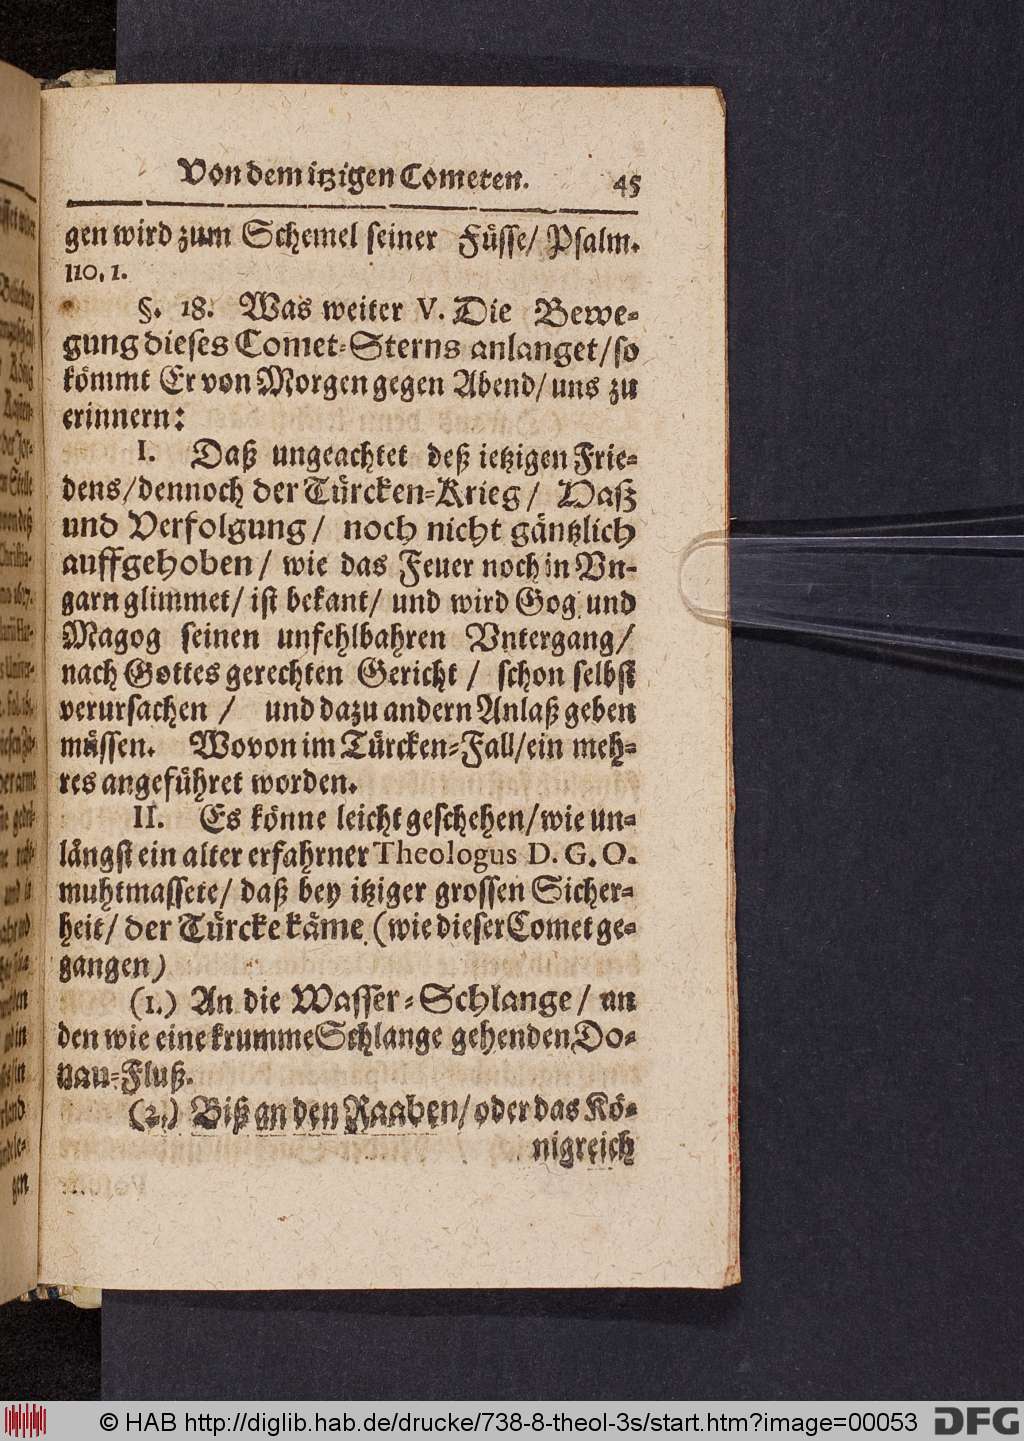 Von dem itzigen Cometen. 45
gen wird zum Schemel seiner Füsse/ Psalm.
110, 1.
§. 18. Was weiter V. Die Bewe-
gung dieses Comet-Sterns anlanget/ so
kömmt Er von Morgen gegen Abend/ uns zu
erinnern:
I. Daß ungeachtet deß ietzigen Frie-
dens/ dennoch der Türcken-Krieg/ Haß
und Verfolgung/ noch nicht gäntzlich
auffgehoben/ wie das Feuer noch in Vn-
garn glimmet/ ist bekant/ und wird Gog und
Magog seinen unfehlbahren Vntergang/
nach Gottes gerechten Gericht/ schon selbst
verursachen/ und dazu andern Anlaß geben
müssen. Wovon im Türcken-Fall/ ein meh-
res angeführet worden.
II. Es könne leicht geschehen/ wie un-
längst ein alter erfahrner Theologus D. G. O.
muhtmassete/ daß bey itziger grossen Sicher-
heit/ der Türcke käme (wie dieser Comet ge-
gangen)
(1.) An die Wasser-Schlange/ an
den wie eine krumme Schlange gehenden Do-
nau-Fluß.
(2.) Biß an den Raaben/ oder das Kö-
nigreich
© HAB http://diglib.hab.de/drucke/738-8-theol-3s/start.htm?image=00053
DFG